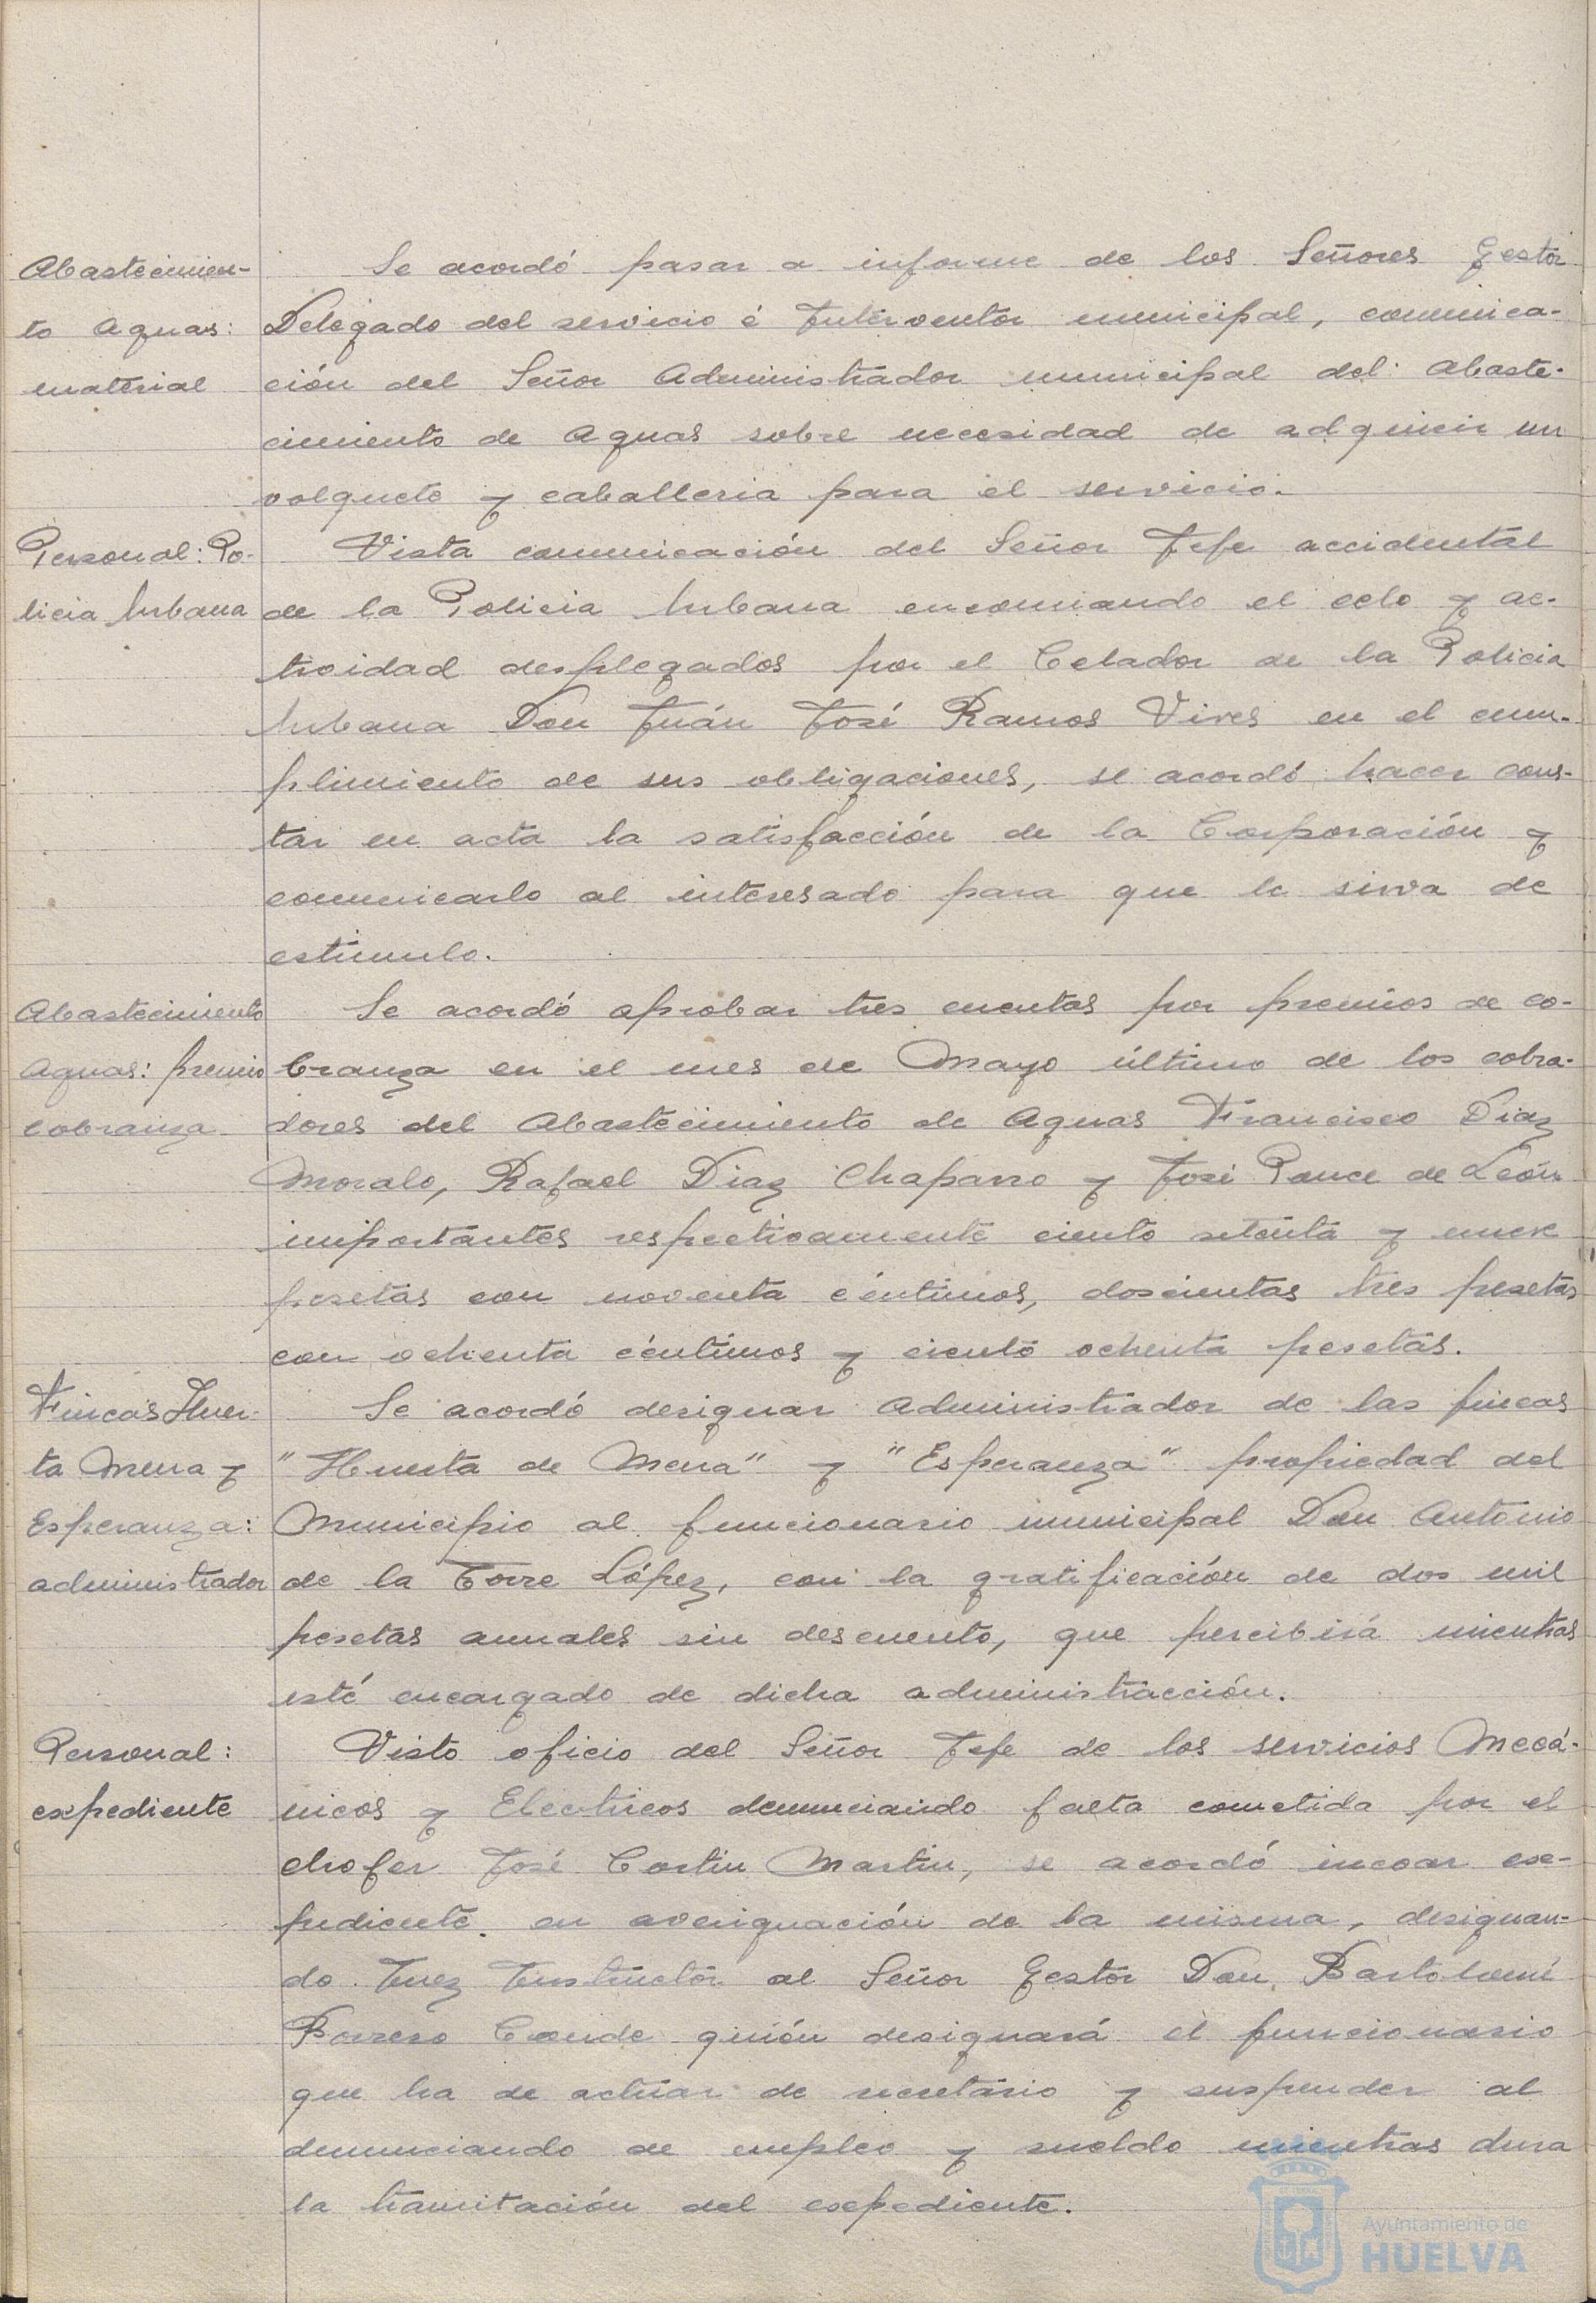 Abastecimien-
to Aguas:
material
Se acordó pasar a informe de los Señores Gestor
Delegado del servicio é Interventor municipal, comunica-
ción del Señor Administrador municipal del Abaste-
cimiento de Aguas sobre necesidad de adquirir un
volquete y caballeria para el servicio.
Personal: Po-
licia Urbana
Vista comunicación del Señor Jefe accidental
de la Policia Urbana encomiando el celo y ac-
tividad desplegados por el Celador de la Policia
Urbana Don Juán José Ramos Vives en el cum-
plimiento de sus obligaciones, se acordó hacer cons-
tar en acta la satisfacción de la Corporación y
comunicarlo al interesado para que le sirva de
estimulo.
Abastecimiento
Aguas: premio
cobranza
Se acordó aprobar tres cuentas por premios de co-
branza en el mes de Mayo último de los cobra-
dores del Abastecimiento de Aguas Francisco Diaz
Moralo, Rafael Diaz Chaparro y José Ponce de León
importantes respectivamente ciento setenta y nueve
pesetas con noventa céntimos, doscientas tres pesetas
con ochenta céntimos y ciento ochenta pesetas.
Fincas Huer-
ta Mena y
Esperanza:
administrador
Se acordó designar Administrador de las fincas
"Huerta de Mena" y "Esperanza" propiedad del
Municipio al funcionario municipal Don Antonio
de la Torre López, con la gratificación de dos mil
pesetas anuales sin descuento, que percibirá mientras
esté encargado de dicha administracción.
Personal:
expediente
Visto oficio del Señor Jefe de los servicios Mecá-
nicos y Electricos denunciando falta cometida por el
chofer José Martin, se acordó incoar ex-
pediente en averiguación de la misma, designan-
do Juez Instructor al Señor Gestor Don Bartolomé
Borrero Conde quién designará el funcionario
que ha de actuar de secretario y suspender al
denunciando de empleo y sueldo mientras dura
la tramitación del expediente.
Ayuntamiento de
HUELVA